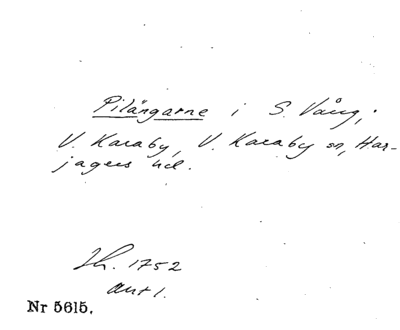 Pilängarne i S. Vång,
V. Karaby, V. Karaby sn, Har-
jagers hd.
Lh. 1752
akt 1.
Nr 5615.